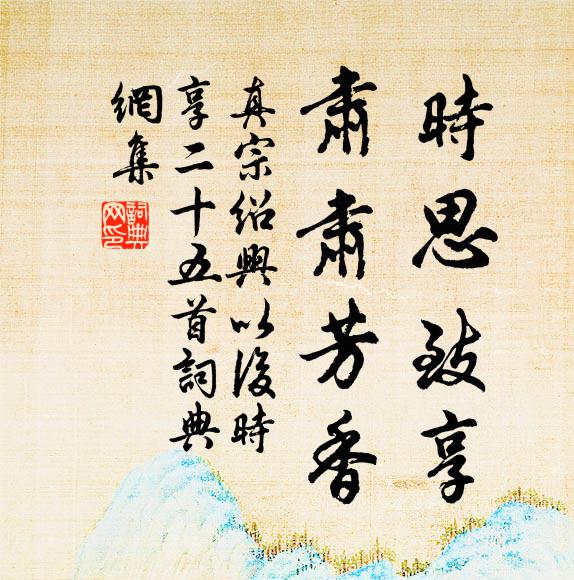 時思致享
肅肅芳香
真宗紹興以後時
享二十五首詞典
網集
詞典
網印